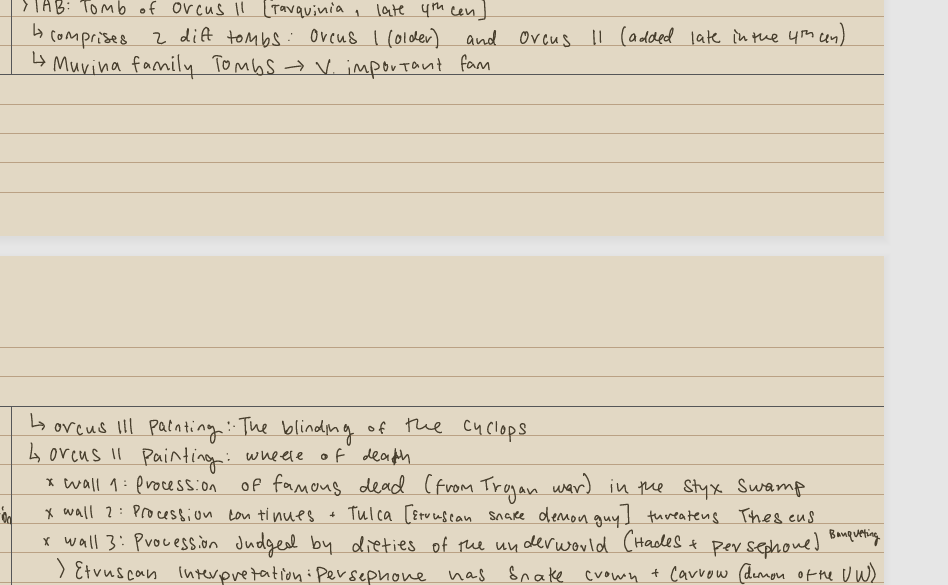 > TAB: Tomb of Orcus II [Tarquinia, late 4th cen]
↳ comprises 2 diff tombs: Orcus I (older) and Orcus II (added late in the 4th cen)
↳ Murina family Tombs → V. important fam
↳ orcus III Painting: The blinding of the cyclops
↳ orcus II Painting: wheele of death
x wall 1: Procession of famous dead (from Trojan war) in the Styx Swamp
x wall 2: Procession continues + Tulca [Etruscan snake demon guy] threatens Theseus
x wall 3: Procession Judged by dieties of the underworld (Hades + persephone) Banqueting
> Etruscan Interpretation: Persephone has snake crown + Carrow (demon of the UW)